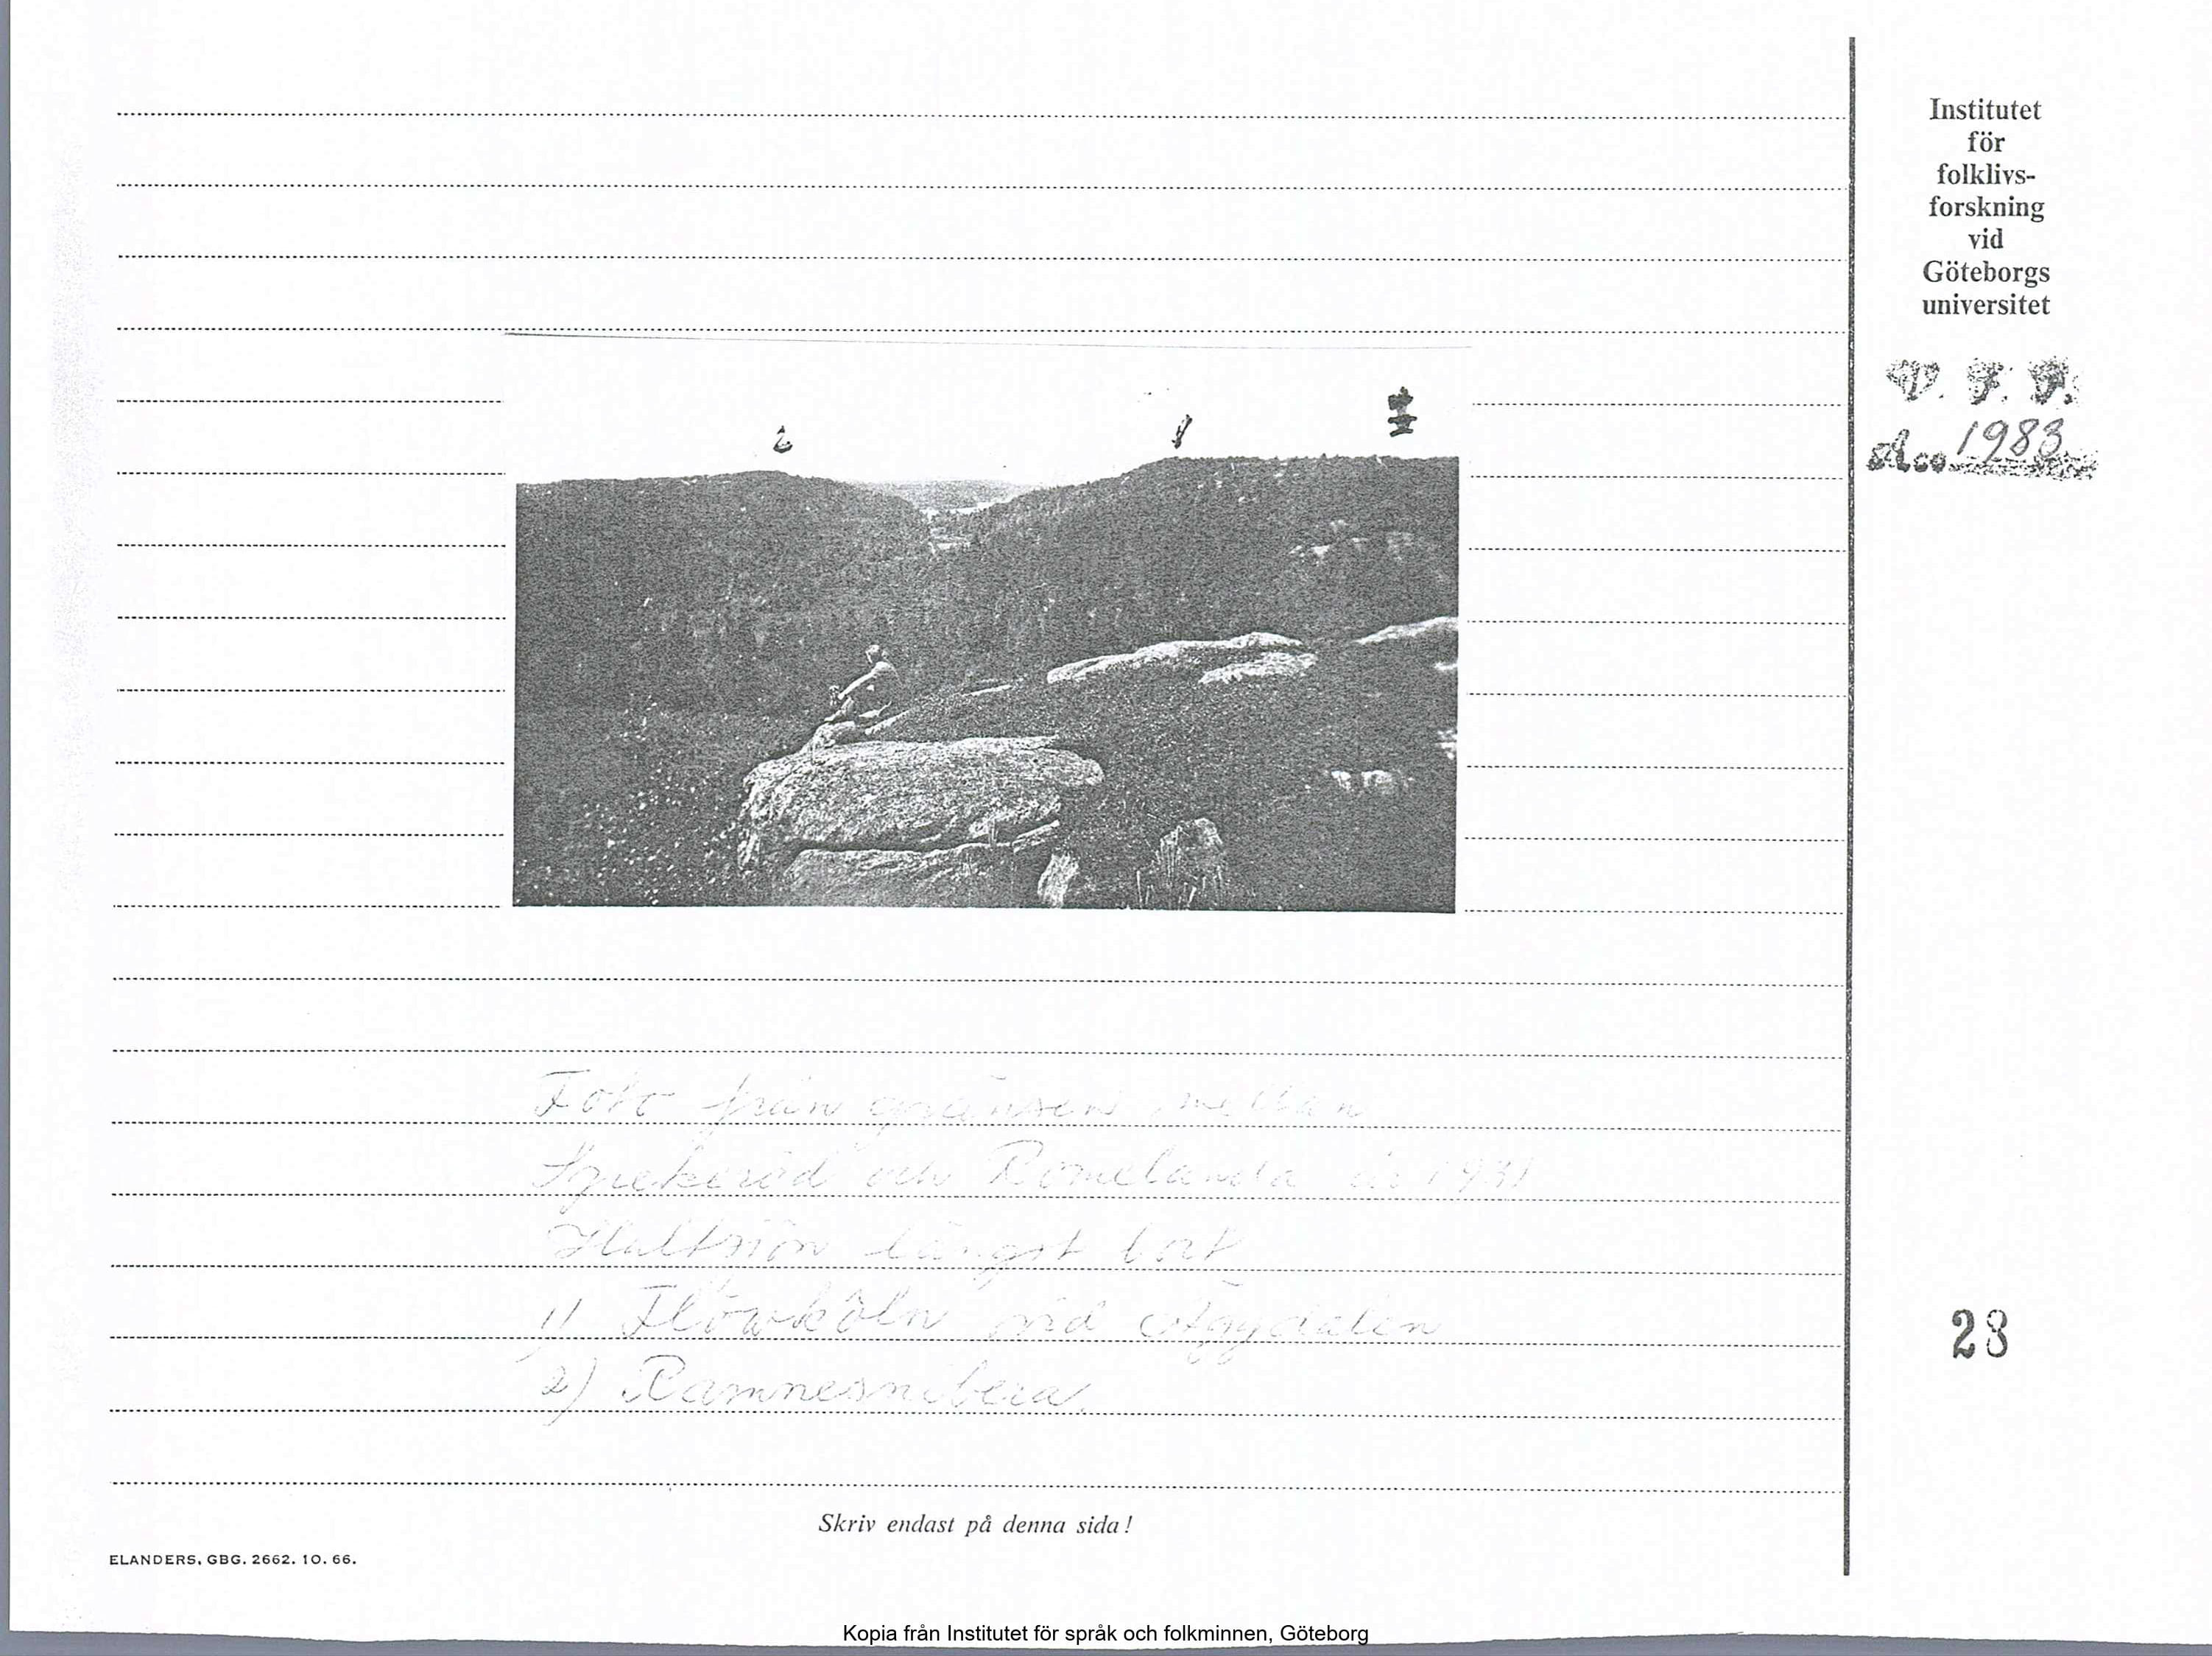 Institutet
för
folklivs-
forskning
vid
Göteborgs
universitet
V. F. F.
Acc 1983
2 1
Foto från gränsen mellan
Spekeröd och Romelanda år 1931
Hultsjön längst bort
1) Flöwköln vid Ågydalen
2) Ramnesnibera.
28
Skriv endast på denna sida!
ELANDERS, GBG. 2662. 10. 66.
Kopia från Institutet för språk och folkminnen, Göteborg